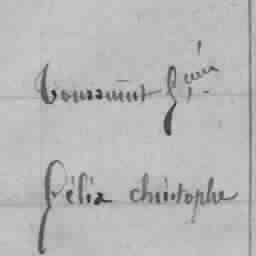 Toussaint G
Félix christophe